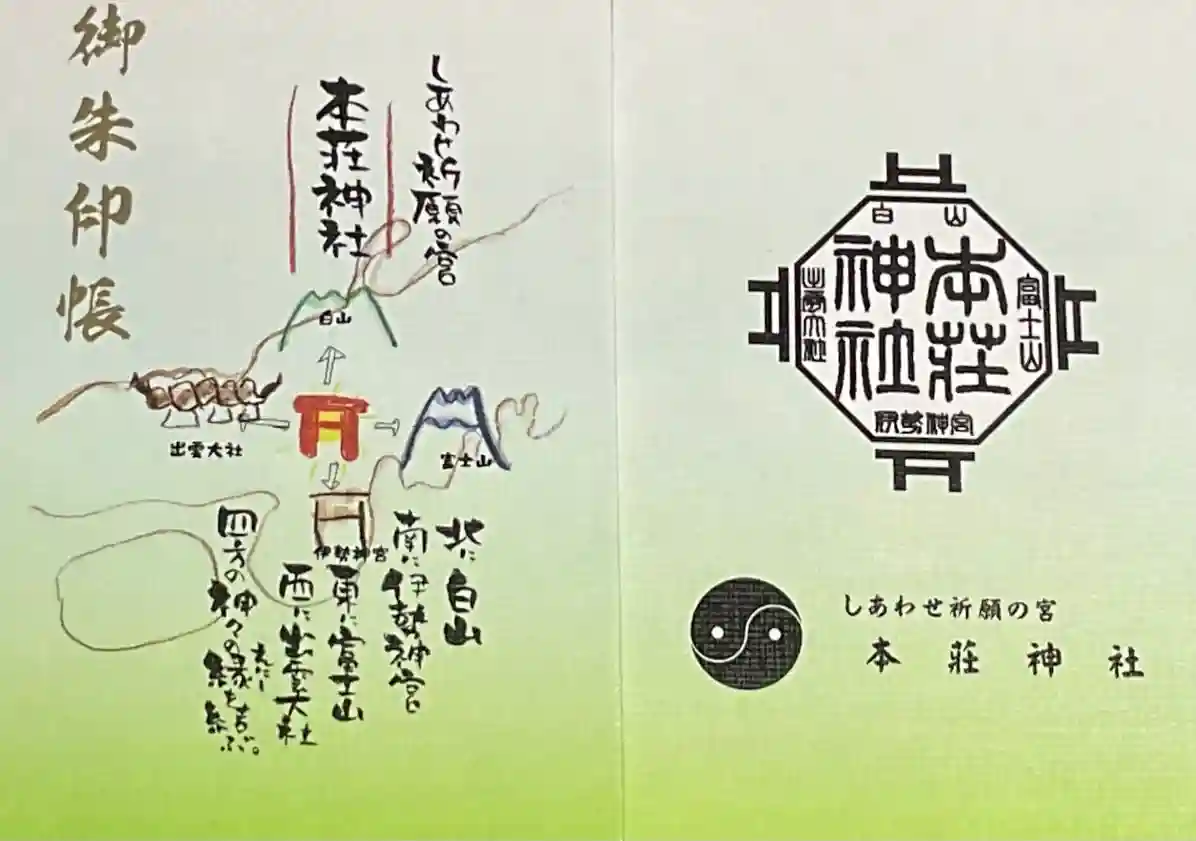 御朱印帳
しあわせ祈願の宮
本荘神社
白山
出雲大社
富士山
伊勢神宮
北に白山
南に伊勢神宮
東に富士山
西に出雲大社
四方の神々の縁を結ぶ。
えにし
白山
本荘
神社
富士山
出雲大社
伊勢神宮
しあわせ祈願の宮
本荘神社